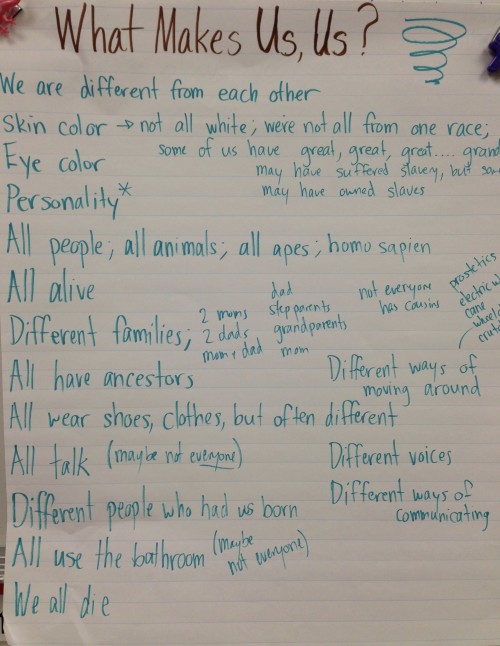 What Makes Us, Us?
We are different from each other
Skin color → not all white; we're not all from one race;
some of us have great, great, great.... grand
may have suffered slavery, but
may have owned slaves
Eye color
Personality*
All people; all animals; all apes; homo sapien
All alive
Different families;
2 moms
2 dads
mom + dad
dad
stepparents
grandparents
mom
not everyone
has cousins
prostetics
electric
cane
Different ways of
moving around
All have ancestors
All wear shoes, clothes, but often different
All talk (maybe not everyone)
Different voices
Different people who had us born
Different ways of
communicating
All use the bathroom (maybe
not everyone)
We all die